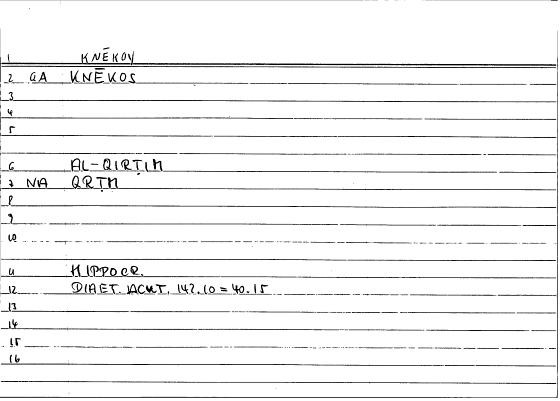 1 KNĒKOU
2 GA KNĒKOS
3
4
5
6 AL-QIRṬIM
7 NA QRṬM
8
9
10
11 HIPPOCR.
12 DIAET. ACUT. 142.10 = 40.15
13
14
15
16